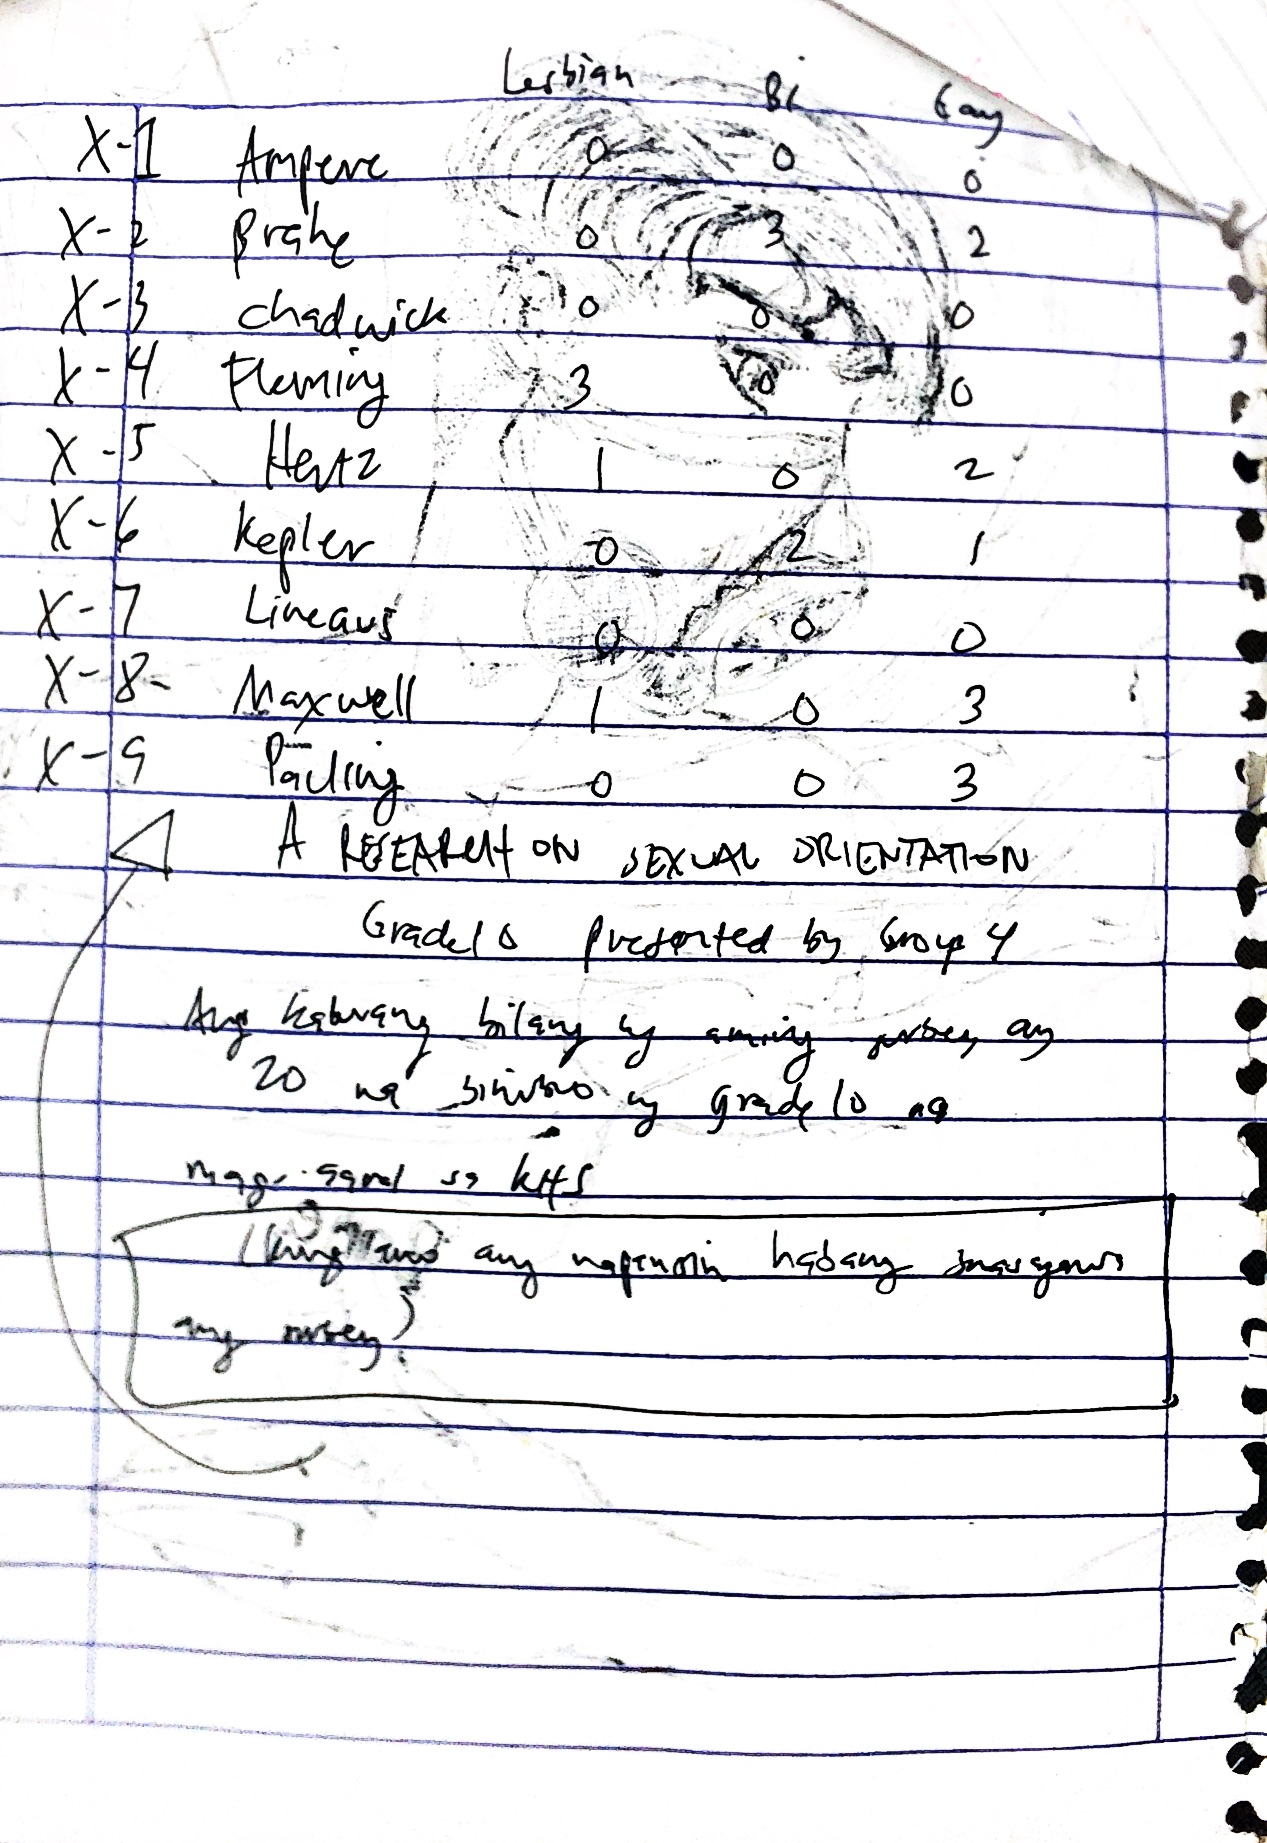 Lesbian Bi Gay
X-1 Ampere 0 0 0
X-2 Brahe 0 3 2
X-3 chadwick 0 0 0
X-4 Fleming 3 0 0
X-5 Hertz 1 0 2
X-6 Kepler 0 2 1
X-7 Lineaus 0 0 0
X-8- Maxwell 1 0 3
X-9 Pauling 0 0 3
A RESEARCH ON SEXUAL ORIENTATION
Grade 10 presented by Group 4
Ang kabuang bilang ng aming survey ay
20 na ng grade 10 na
mag-aaral sa KHS
ang napansin habang
ang survey)